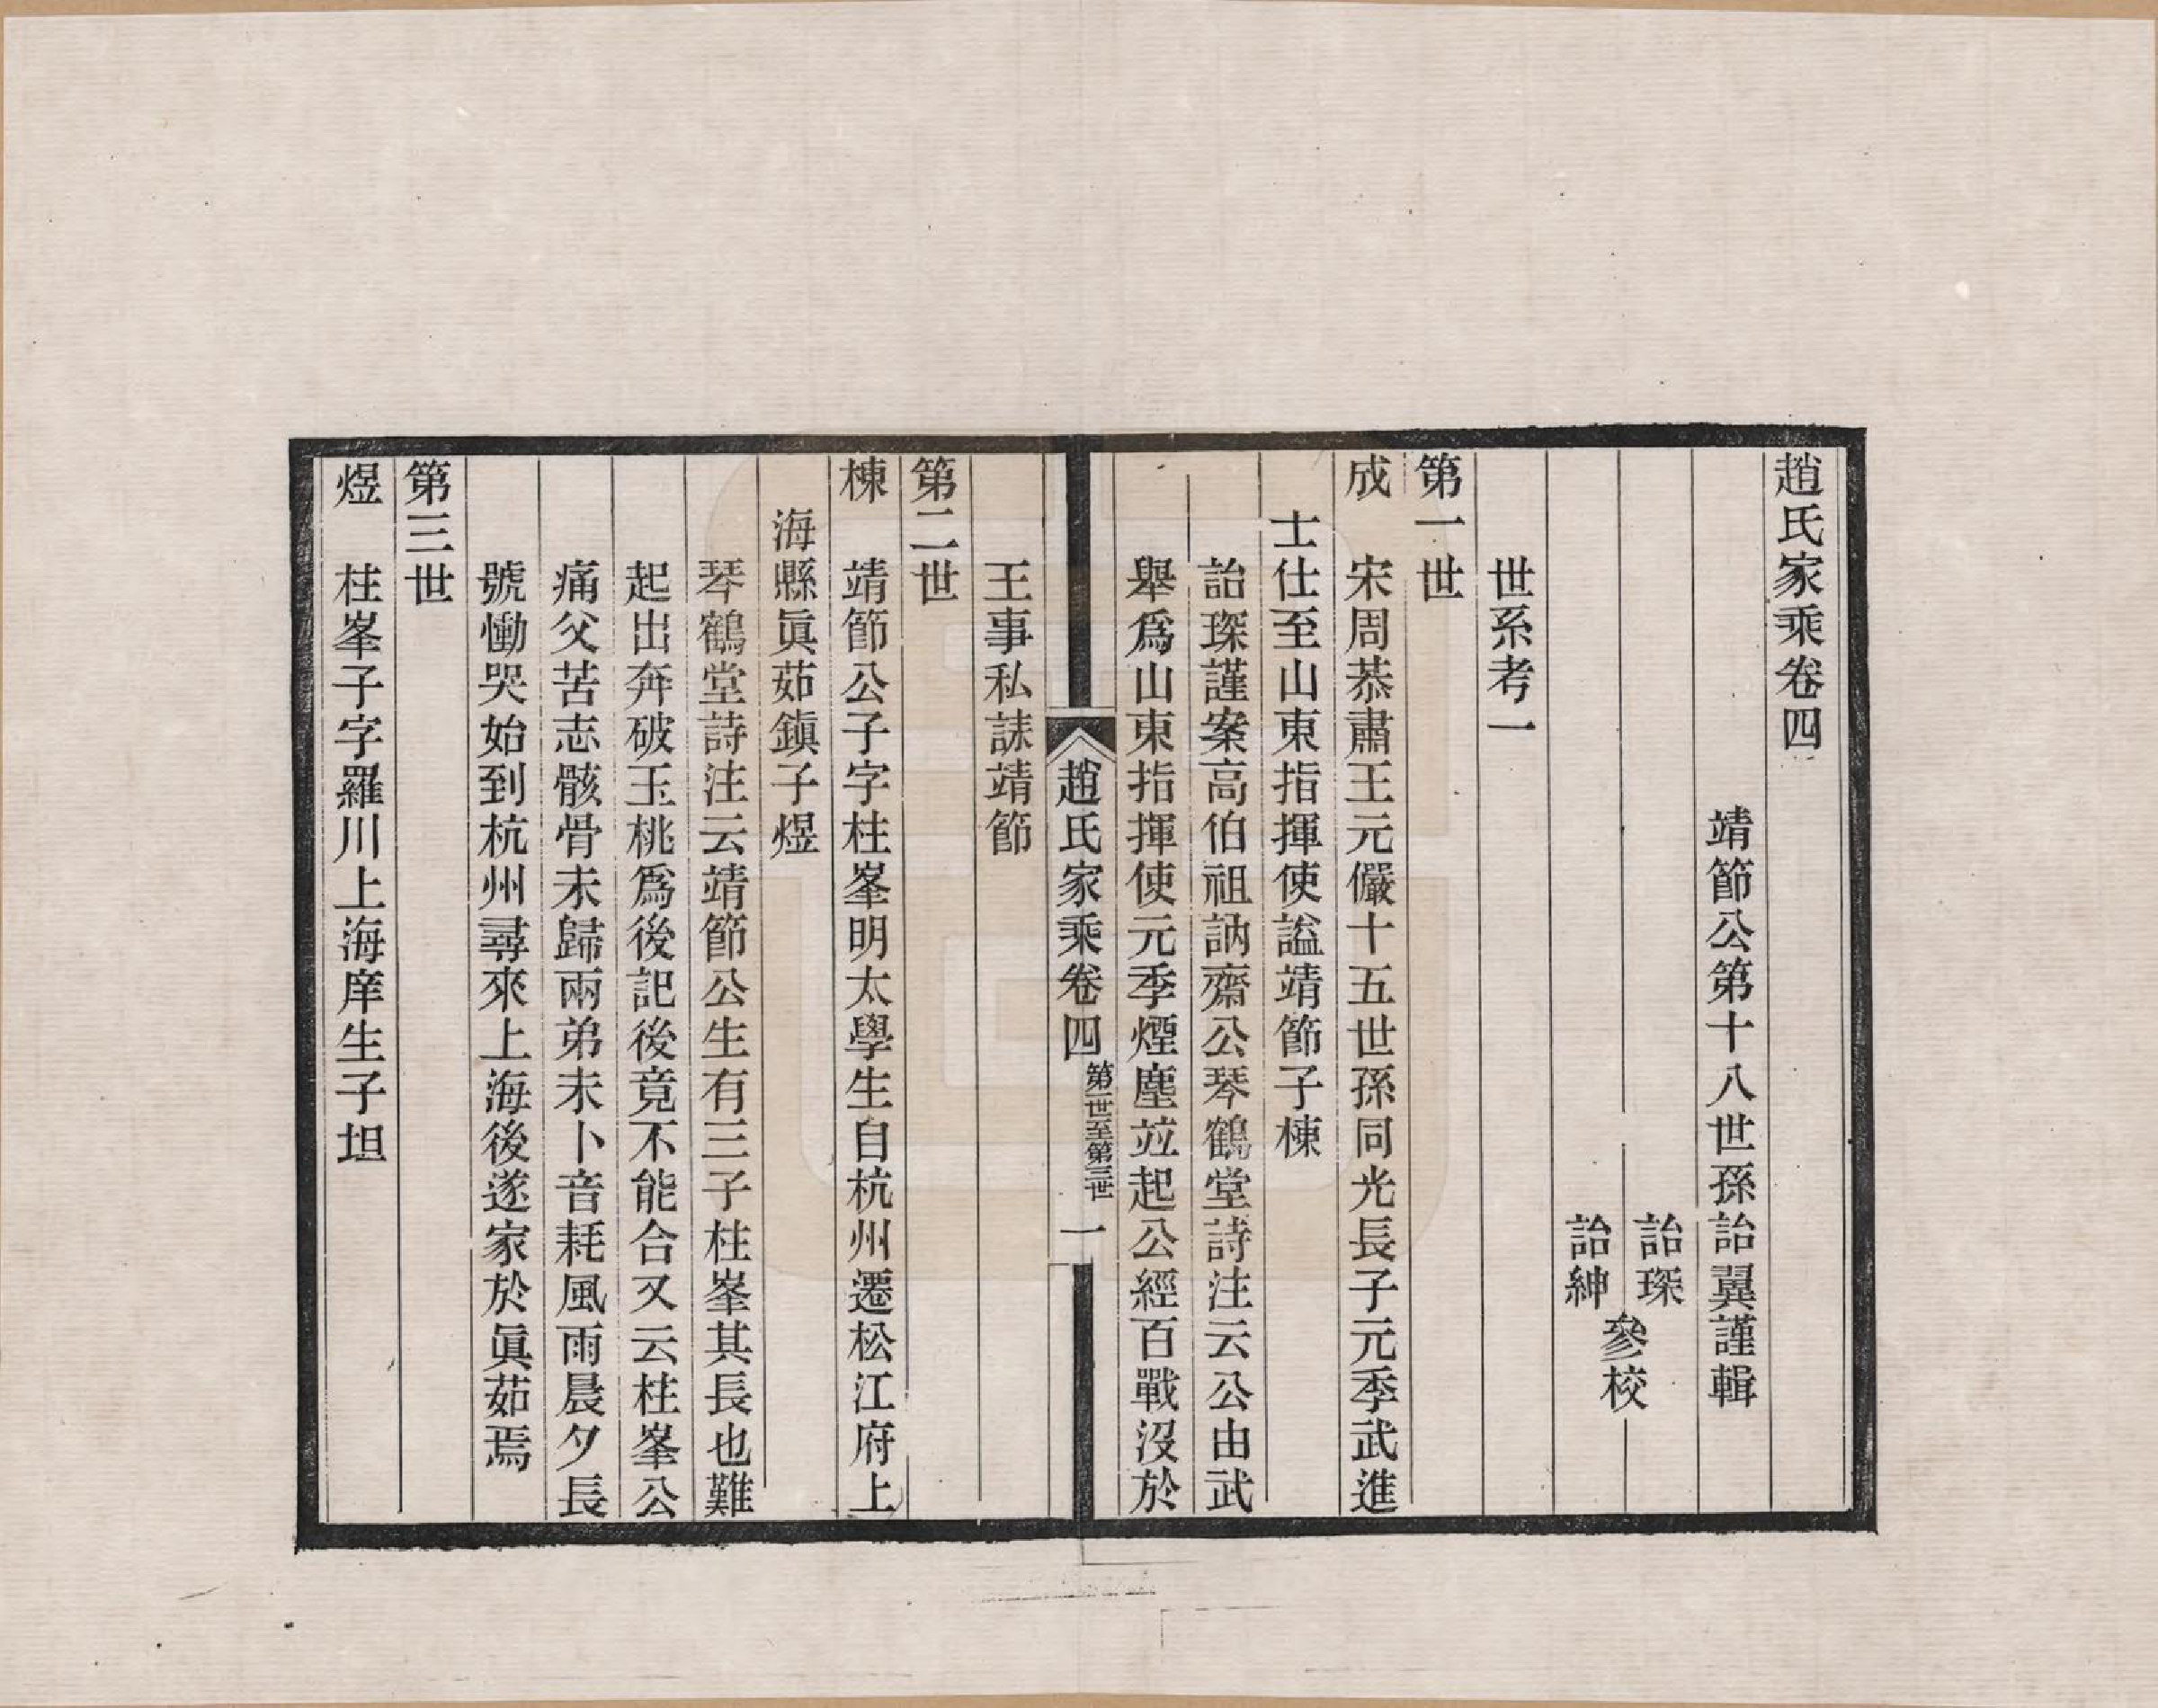 趙氏家乘卷四
靖節公第十八世孫詒翼謹輯
詒琛
詒紳
參校
世系考一
第一世
成　宋周恭肅王元儼十五世孫同光長子元季武進
士仕至山東指揮使諡靖節子棟
詒琛謹案高伯祖訥齋公琴鶴堂詩注云公由武
舉爲山東指揮使元季煙塵竝起公經百戰沒於
趙氏家乘卷四　第一世至第三世　一
王事私諡靖節
第二世
棟　靖節公子字柱峯明太學生自杭州遷松江府上
海縣眞茹鎭子煜
琴鶴堂詩注云靖節公生有三子柱峯其長也難
起出奔破玉桃爲後記後竟不能合又云柱峯公
痛父苦志骸骨未歸兩弟未卜音耗風雨晨夕長
號慟哭始到杭州尋來上海後遂家於眞茹焉
第三世
煜　柱峯子字羅川上海庠生子坦